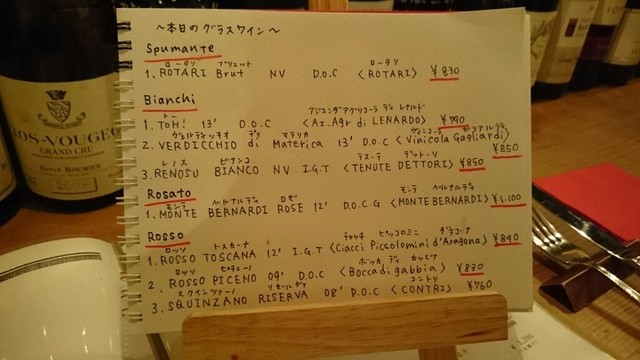 ～本日のグラスワイン～
Spumante
ロータリ ブリュット ロータリ
1. ROTARI Brut NV D.O.C <ROTARI> ¥830
Bianchi
トー アジェンダアグリコーラ ディ レナルド
1. TOH! 13' D.O.C <Az.Agr di LENARDO> ¥790
ヴェルディッキオ ディ マテリカ ヴィニコーラ ガリアルディ
2. VERDICCHIO di Materica 13' D.O.C <Vinicola Gagliardi> ¥850
レノズ ビアンコ テヌーテ デットーリ
3. RENOSU BIANCO NV I.G.T <TENUTE DETTORI> ¥850
Rosato
モンテ ベルナルディ ロゼ モンテ ベルナルディ
1. MONTE BERNARDI ROSE 12' D.O.C.G <MONTE BERNARDI> ¥1,100
Rosso
ロッソ トスカーナ チャッチ ピッコロミニ ダラゴーナ
1. ROSSO TOSCANA 12' I.G.T <Ciacci Piccolomini d'Aragona> ¥840
ロッソ ピチェーノ ボッカ ディ ガッビア
2. ROSSO PICENO 09' D.O.C <Boccadigabbia> ¥830
スクインツァーノ リゼルヴァ コントリ
3. SQUINZANO RISERVA 08' D.O.C <CONTRI> ¥760
CLOS-VOUGEOT
GRAND CRU